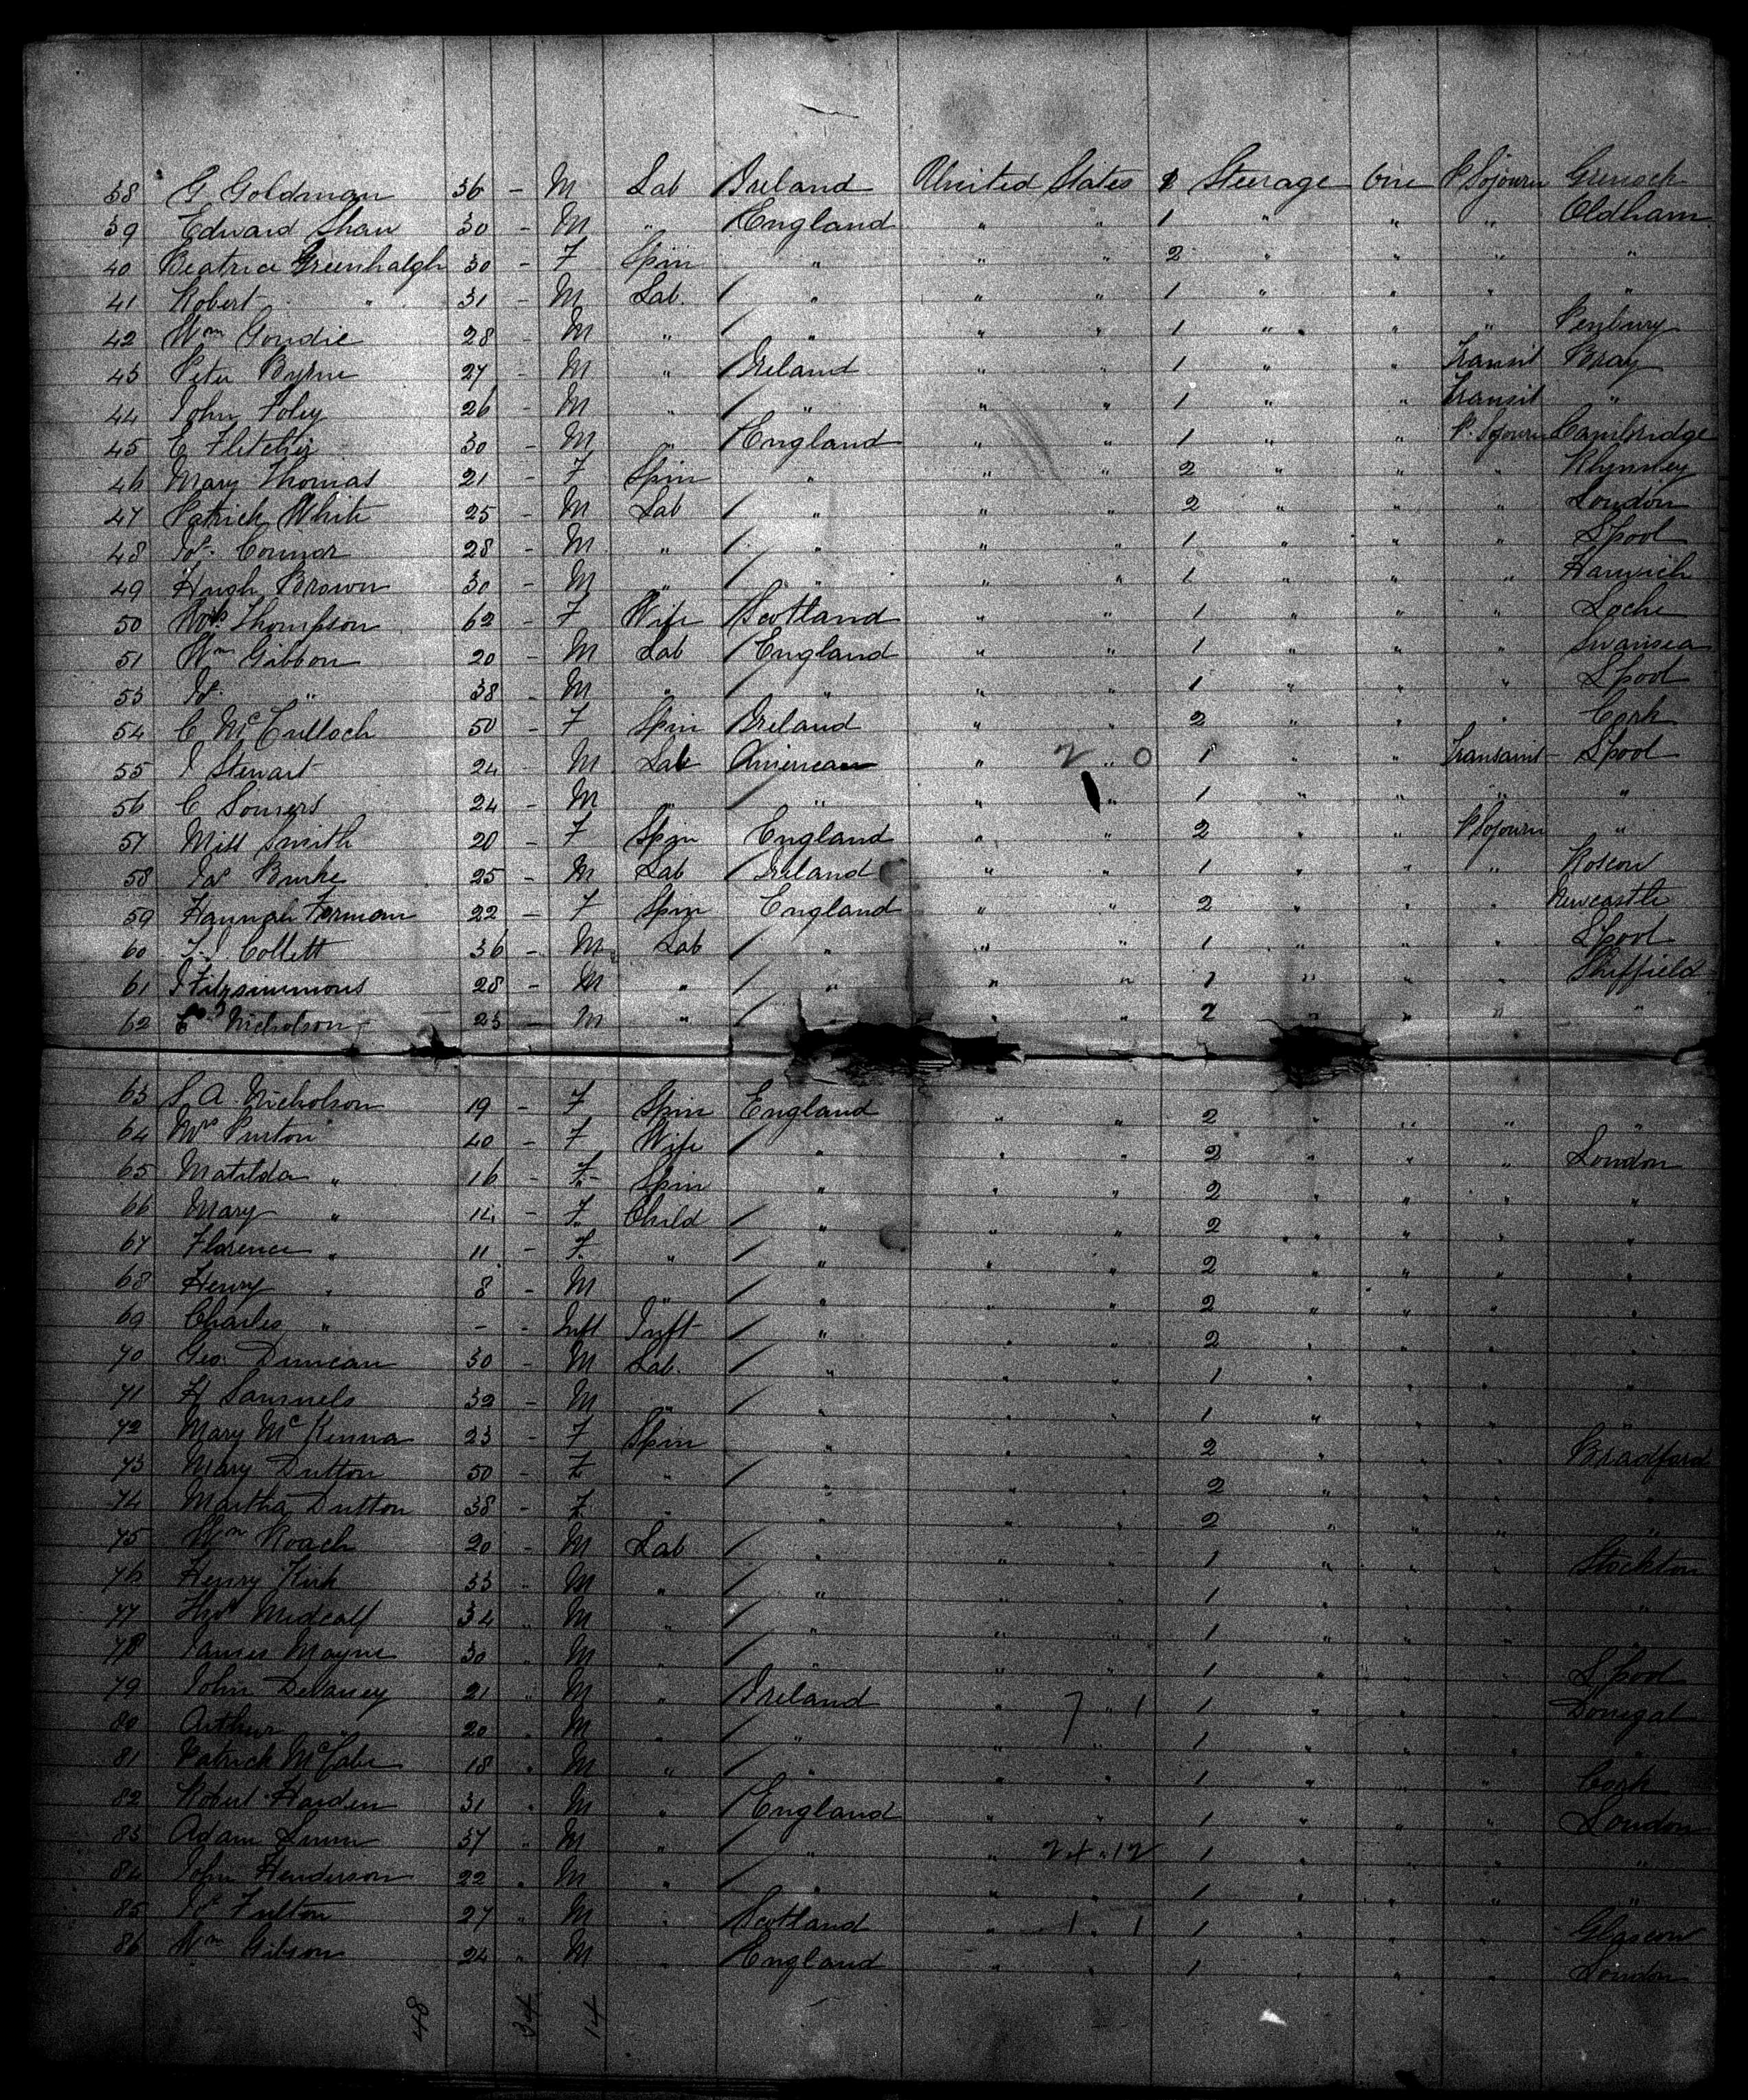 38 G Goldman 36 - M Lab Ireland United States 1 Steerage One P Sojourn Grenoch
39 Edward Shaw 30 - M " England " " 1 " " " Oldham
40 Beatrice Greenhalgh 30 - F Spin " " " 2 " " " "
41 Robert " 31 - M Lab / " " " 1 " " " "
42 Wm Goudie 28 - M " / " " " 1 " " "
43 Peter Byrne 27 - M " Ireland " " 1 " " Transit Bray
44 John Foley 26 - M " / " " " 1 " " Transit "
45 E Fletcher 30 - M " England " " 1 " " P. Sojourn Cambridge
46 Mary Thomas 21 - F Spin " " " 2 " " " Rhymney
47 Patrick White 25 - M Lab / " " " 2 " " " London
48 Jos. Connor 28 - M " / " " " 1 " " " L'Pool
49 Hugh Brown 30 - M " / " " " 1 " " " Harwich
50 Mrs Thompson 62 - F Wife Scotland " " 1 " " "
51 Wm Gibbon 20 - M Lab England " " 1 " " " Swansea
53 Jos. " 38 - M " / " " " 1 " " " L'Pool
54 C McCulloch 50 - F Spin Ireland " " 2 " " " Cork
55 J Stewart 24 - M Lab American " 2 " 0 1 " " Transaint L'Pool
56 C Somers 24 - M " / " " " 1 " " " "
57 Miss Smith 20 - F Spin England " " 2 " " P Sojourn "
58 Jos Burke 25 - M Lab Ireland " " 1 " " "
59 Hannah Forman 22 - F Spin England " " 2 " " " Newcastle
60 Collett 36 - M Lab / " " " 1 " " " L'Pool
61 J Fitzsimmons 28 - M " / " " " 1 " " " Sheffield
62 Nicholson 23 - M " / " " 2 " " " "
63 S. A. Nicholson 19 - F Spin England " " 2 " " " "
64 Mrs Purton 40 - F Wife / " " " 2 " " " London
65 Matilda " 16 - F Spin " " " 2 " " " "
66 Mary " 14 - F Child / " " " 2 " " " "
67 Florence " 11 - F " / " " " 2 " " " "
68 Henry " 8 - M " / " " " 2 " " " "
69 Charles " - - Inft Inft / " " " 2 " " " "
70 Geo. Duncan 30 - M Lab. / " " " 1 " " " "
71 H Samuels 32 - M " / " " " 1 " " " "
72 Mary McKenna 23 - F Spin " " " 2 " " " Bradford
73 Mary Dutton 50 - F " / " " " 2 " " " "
74 Martha Dutton 38 - F " " " " 2 " " " "
75 Wm Roach 20 - M Lab / " " " 1 " " " Stockton
76 Henry Kirk 33 " M " / " " " 1 " " " "
77 Thos Midcalf 34 " M " / " " " 1 " " " "
78 James Mayne 30 " M " / " " " 1 " " " L'Pool
79 John Delaney 21 " M " Ireland " 7 " 1 1 " " " Donegal
80 Arthur " 20 " M " / " 1 " " " "
81 Patrick McCabe 18 " M " / " " " 1 " " " Cork
82 Robert Harden 31 " M " England " " 1 " " " London
83 Adam 37 " M " / " " 24 " 12 1 " " " "
84 John Henderson 22 " M " / " " " 1 " " " "
85 Jos Fulton 27 " M " Scotland " 1 " 1 1 " " " Glascow
86 Wm Gibson 24 " M " England " " 1 " " " London
48 34 14